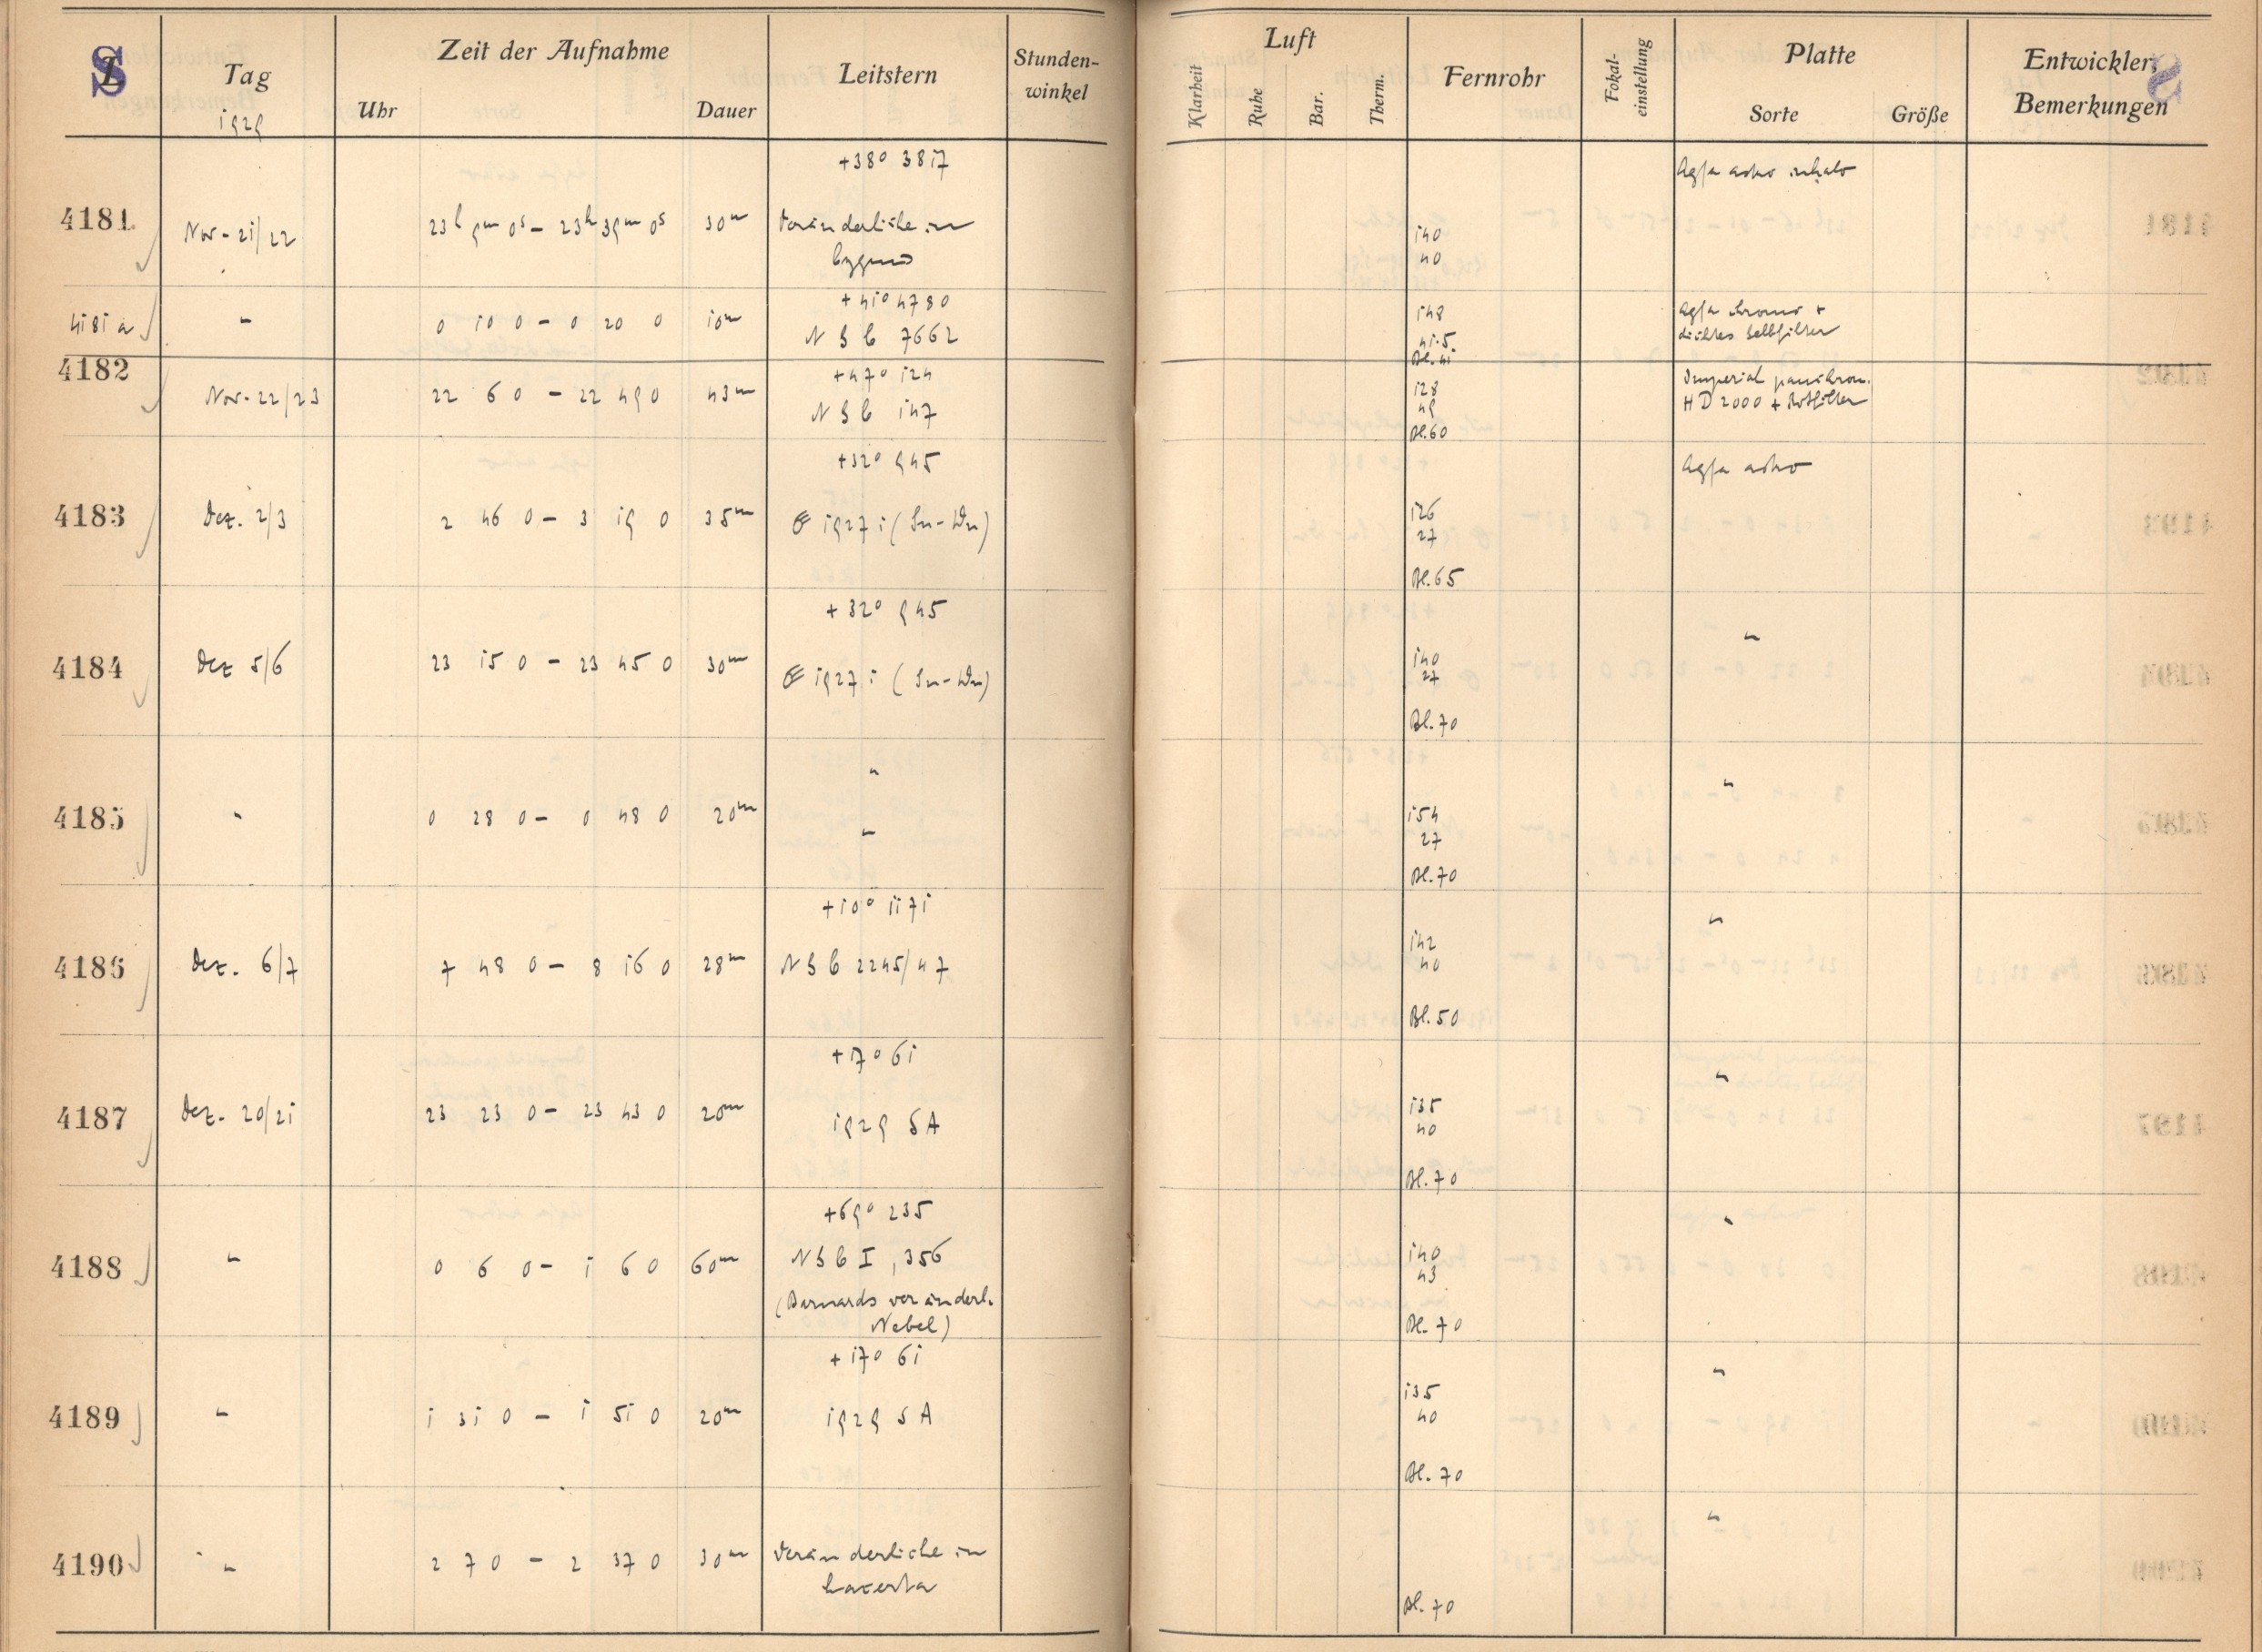 S L Tag Zeit der Aufnahme Leitstern Stunden-winkel Luft Fernrohr Fokal-einstellung Platte Entwickler,
1929 Uhr Dauer Klarheit Ruhe Bar. Therm. Sorte Größe Bemerkungen
+38° 3817 Agfa astro
4181 Nov. 21/22 23h 9m 0s – 23h 39m 0s 30m Veränderliche in 140
Cygnus 40
+41° 4780
4181 a " 0 10 0 – 0 20 0 10m N G C 7662 148 Agfa chromo +
41.5 dichtes Gelbfilter
Bl. 41
4182 +47° 124
Nov. 22/23 22 6 0 – 22 49 0 43m N G C 147 128 Imperial panchrom.
49 H D 2000 + Rotfilter
Bl. 60
+32° 945 Agfa astro
4183 Dez. 2/3 2 46 0 – 3 19 0 35m 1927 i (Sn-Wn) 126
27
Bl. 65
+32° 945 "
4184 Dez 5/6 23 15 0 – 23 45 0 30m 1927 i (Sn-Wn) 140
27
Bl. 70
" "
4185 " 0 28 0 – 0 48 0 20m " 154
27
Bl. 70
+10° 1171 "
4186 Dez. 6/7 7 48 0 – 8 16 0 28m N G C 2245/47 142
40
Bl. 50
+17° 61 "
4187 Dez. 20/21 23 23 0 – 23 43 0 20m 1929 SA 135
40
Bl. 70
+69° 235 "
4188 " 0 6 0 – 1 6 0 60m N G C I, 356 140
43
(Barnards veränderl. Bl. 70
Nebel)
+17° 61 "
4189 " 1 31 0 – 1 51 0 20m 1929 SA 135
40
Bl. 70
4190 " 2 7 0 – 2 37 0 30m Veränderliche in "
Lacerta Bl. 70